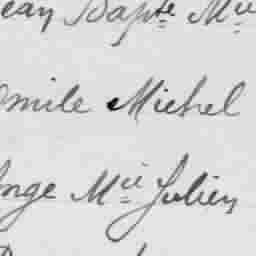 Jean Bapte Mie
Emile Michel
Ange Mie Julien